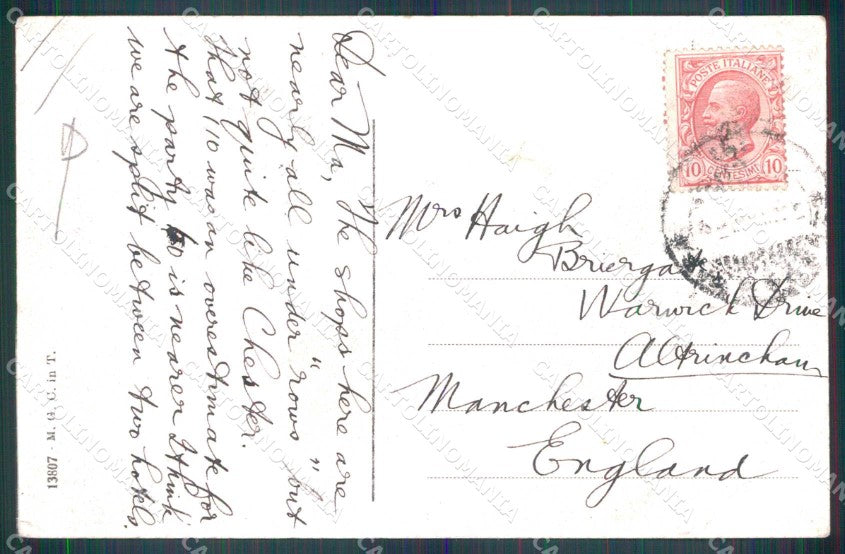 Dear Ma, The shops here are
nearly all under "rows" but
not quite like Chester.
That 110 was an overestimate for
the party 40 is nearer I think
we are split between two hotels.
13807 - M. G. C. in T.
POSTE ITALIANE
10 CENTESIMI 10
Mrs Haigh
Briergate
Warwick Drive
Altrincham
Manchester
England
CARTOLINOMANIA